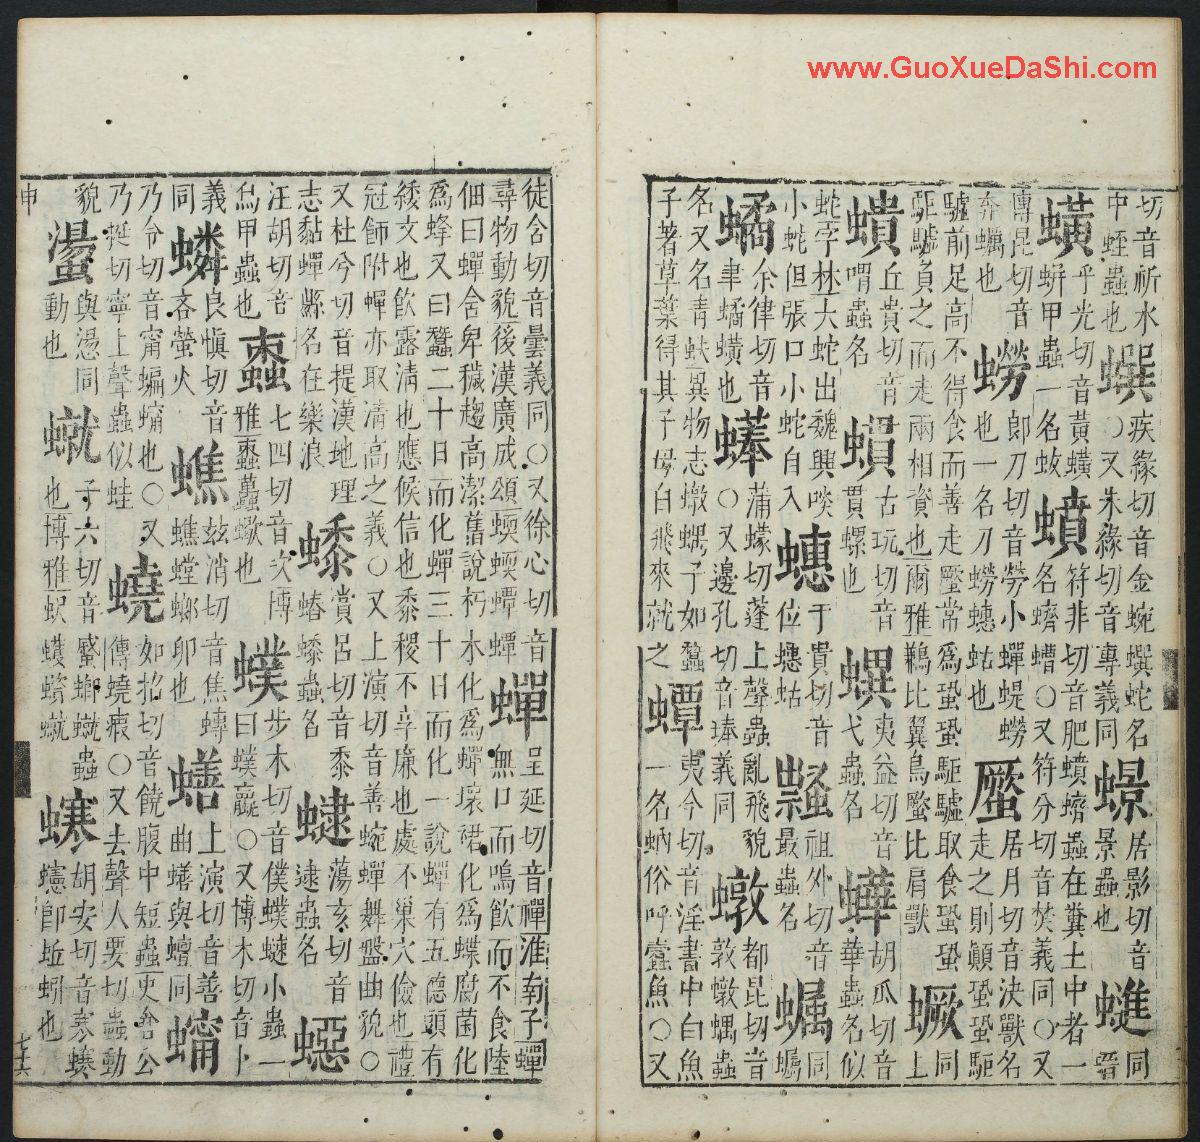 切音祈水中蛭蟲也 蟤 疾緣切音金蜿蟤蛇名○又朱緣切音專義同 居影切音景蟲也 同
蟥 乎光切音黃蟥蛢甲蟲一名蛂 蟦 符非切音肥蟦蠐蟲在糞土中者一名蠐螬○又符分切音焚義同○又
傳昆切音奔蠣也 蟧 郎刀切音勞小蟬蝭蟧也一名刀蟧蟪蛄也 蟨 居月切音決獸名走之則顛蛩蛩駏
驉前足高不得食而善走蟨常為蛩蛩駏驉取食蛩蛩駏驉負之而走兩相資也爾雅鶼比翼鳥蟨比肩獸 蟩 同上
丘貴切音喟蟲名 古玩切音貫螺也 夷益切音弋蟲名 胡瓜切音華蟲名似
蛇字林大蛇出魏興啖小蛇但張口小蛇自入 蟪 于貴切音位蟪蛄 祖外切音最蟲名 同蠾
𧑐 余律切音聿𧑐蟥也 蒲蠓切蓬上聲蟲亂飛貌○又邊孔切音琫義同 都昆切音敦蝺蟲
名又名青蚨異物志蝺子如蠶子著草葉得其子母自飛來就之 蟫 夷今切音淫書中白魚一名蛃俗呼蠹魚○又
徒含切音曇義同○又徐心切音尋物動貌後漢廣成頌蝡蝡蟫蟫 蟬 呈延切音禪淮南子蟬無口而鳴飲而不食陸
佃曰蟬舍卑穢趨高潔舊說朽木化為蟬壞裙化為蝶腐菌化為蜂又曰蠶二十日而化蟬三十日而化一說蟬有五德頭有
緌文也飲露清也應候信也黍稷不享廉也處不巢穴儉也禮冠飾附蟬亦取清高之義○又上演切音善蜿蟬舞盤曲貌○
又杜兮切音提漢地理志黏蟬縣名在樂浪 賞呂切音黍蝽蟲名 蕩亥切音逮蟲名
汪胡切音烏甲蟲也 七四切音次博雅蠍也 步木切音僕小蟲一曰蠃○又博木切音卜
義同 良慎切音吝螢火 蟭 玆消切音焦蟭螗蜋卵也 蟮 上演切音善曲蟮與蟺同
乃令切音甯蝙也○又乃挺切寧上聲蟲似蛙 蟯 如招切音饒腹中短蟲史倉公傳蟯瘕○又去聲人要切蟲動
貌 與慯同動也 子六切音蹙蟲也博雅 胡安切音寒即蚯蚓也
申
www.GuoXueDaShi.com